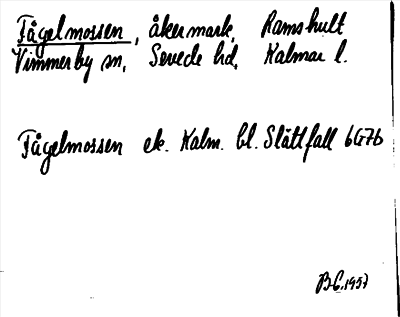 Fågelmossen, åkermark, Ramshult
Vimmerby sn, Sevede hd, Kalmar l.
Fågelmossen ek. Kalm. bl. Slättfall 6G7b
B.C. 1957